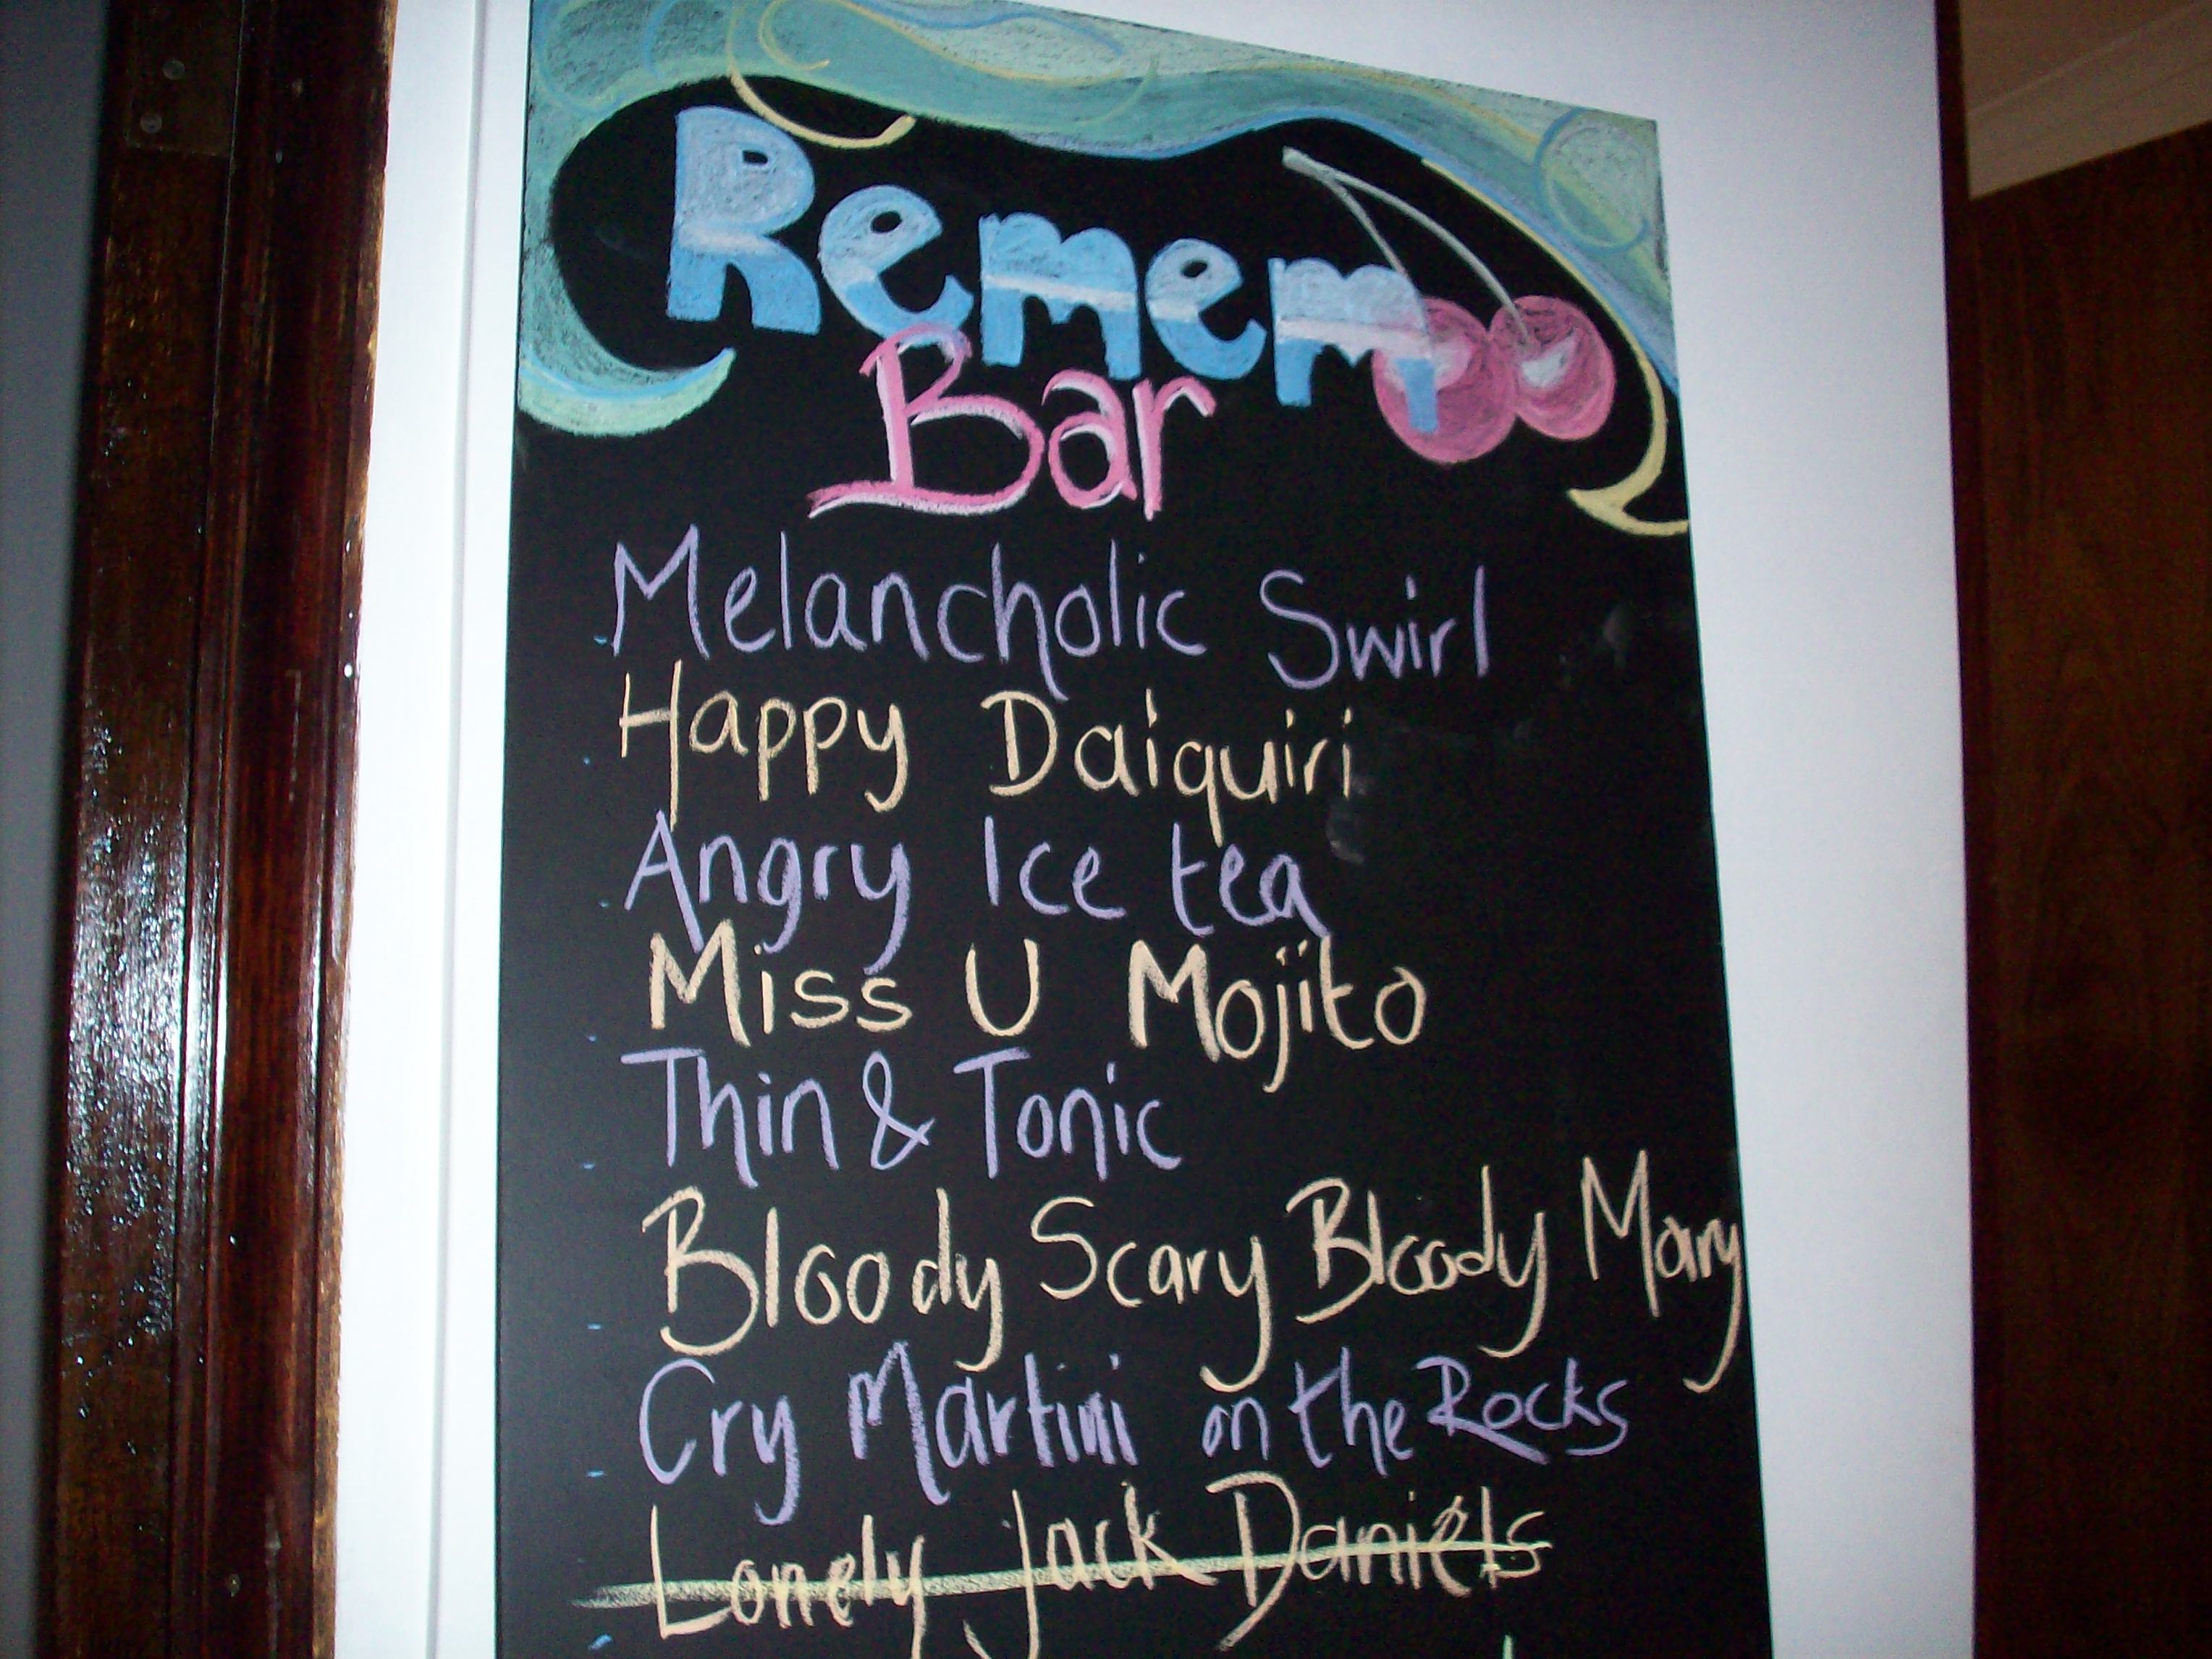 Remem
Bar
Melancholic Swirl
Happy Daiquiri
Angry Ice tea
Miss U Mojito
Thin & Tonic
Bloody Scary Bloody Mary
Cry Martini on the Rocks
Lonely Jack Daniels